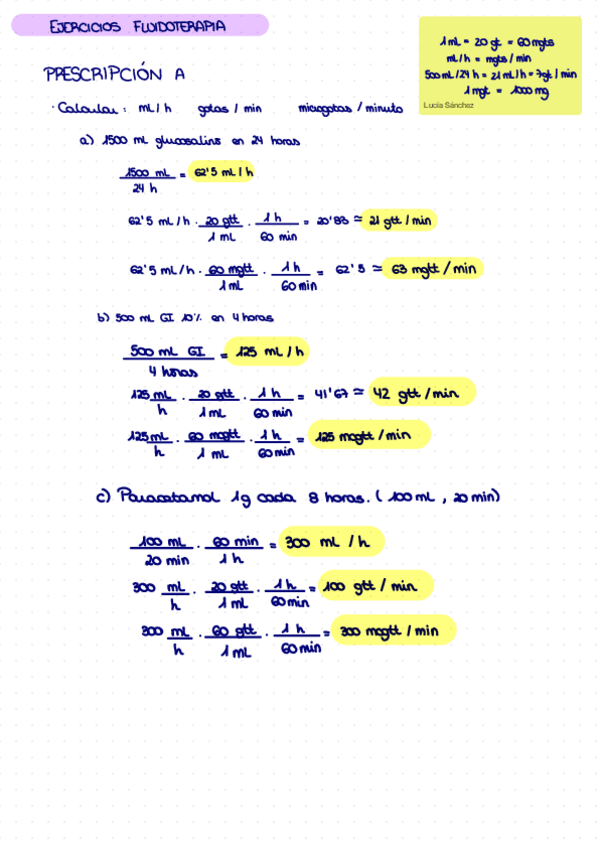 EJERCICIOS FLUIDOTERAPIA
1 mL = 20 gt = 60 mgts
mL/h = mgts/min
500 mL/24 h = 21 mL/h = 7gt/min
1 mgt = 1000 mg
Lucía Sánchez
PRESCRIPCIÓN A
· Calcular : mL/h gotas / min microgotas / minuto
a) 1500 mL glucosalino en 24 horas
1500 mL / 24 h = 62'5 mL/h
62'5 mL/h · 20 gtt / 1 mL · 1 h / 60 min = 20'83 ≃ 21 gtt/min
62'5 mL/h · 60 mgtt / 1 mL · 1 h / 60 min = 62'5 ≃ 63 mgtt/min
b) 500 mL GI 10% en 4 horas
500 mL GI / 4 horas = 125 mL/h
125 mL / h · 20 gtt / 1 mL · 1 h / 60 min = 41'67 ≃ 42 gtt/min
125 mL / h · 60 mcgtt / 1 mL · 1 h / 60 min = 125 mcgtt/min
c) Paracetamol 1g cada 8 horas. ( 100 mL , 20 min)
100 mL / 20 min · 60 min / 1 h = 300 mL / h
300 mL / h · 20 gtt / 1 mL · 1 h / 60 min = 100 gtt / min
300 mL / h · 60 gtt / 1 mL · 1 h / 60 min = 300 mcgtt / min